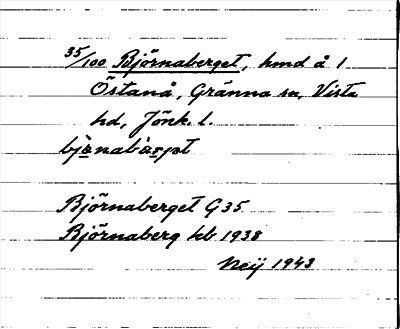 35/100 Björnaberget, hmd å 1
Östanå, Gränna sn, Vista
hd, Jönk. l.
bjönabärjet
Björnaberget G 35
Björnaberg kb 1938
Neij 1943